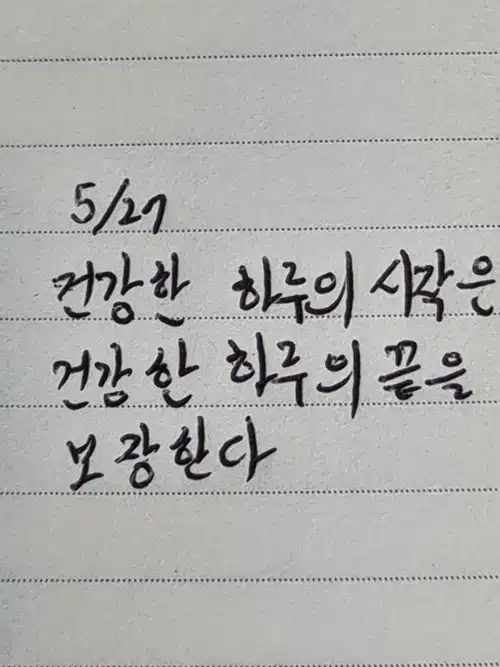 5/27
건강한 하루의 시작은
건강한 하루의 끝을
보장한다